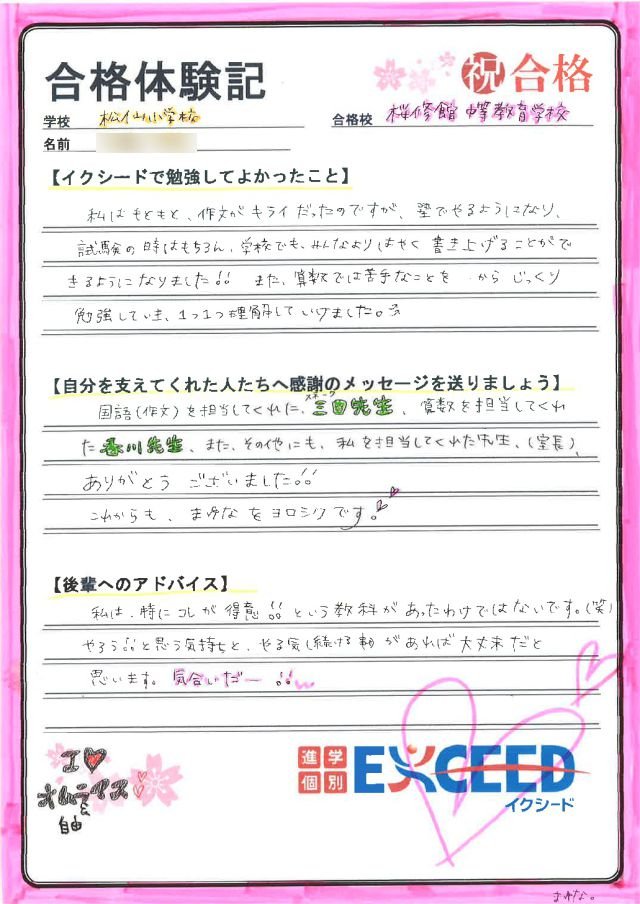 合格体験記
祝 合格
学校 松仙小学校
合格校 桜修館中等教育学校
名前
【イクシードで勉強してよかったこと】
私はもともと、作文がキライだったのですが、塾でやるようになり、
試験の時はもちろん、学校でも、みんなよりはやく書き上げることがで
きるようになりました!! また、算数では苦手なことを からじっくり
勉強していき、1つ1つ理解していけました。
【自分を支えてくれた人たちへ感謝のメッセージを送りましょう】
国語(作文)を担当してくれた、三田先生、算数を担当してくれ
た香川先生、また、その他にも、私を担当してくれた先生、(室長)、
ありがとう ございました!!
これからも、まゆなをヨロシクです。
【後輩へのアドバイス】
私は、特にコレが得意!!という教科があったわけではないです。(笑)
やろう!!と思う気持ちと、やる気し続ける事があれば大丈夫だと
思います。気合いだー!!
I
オムライス
自由
進学
個別
EXCEED
イクシード